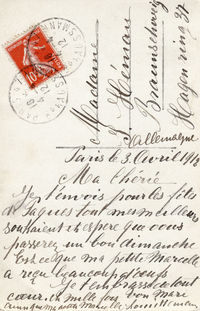 Madame
S. Hémon
Braunschweig
Hagenring 37
Allemagne
Paris le 3 Avril 1912
Ma Chérie
Je t'envois pour les fêtes
de Pâques tout mes meilleurs
souhaits et espère que vous
passerez un bon dimanche
Est-ce que ma petite Marcelle
a reçu beaucoup d'oeufs
Je t'embrasse de tout
coeur, et mille fois, ton mari